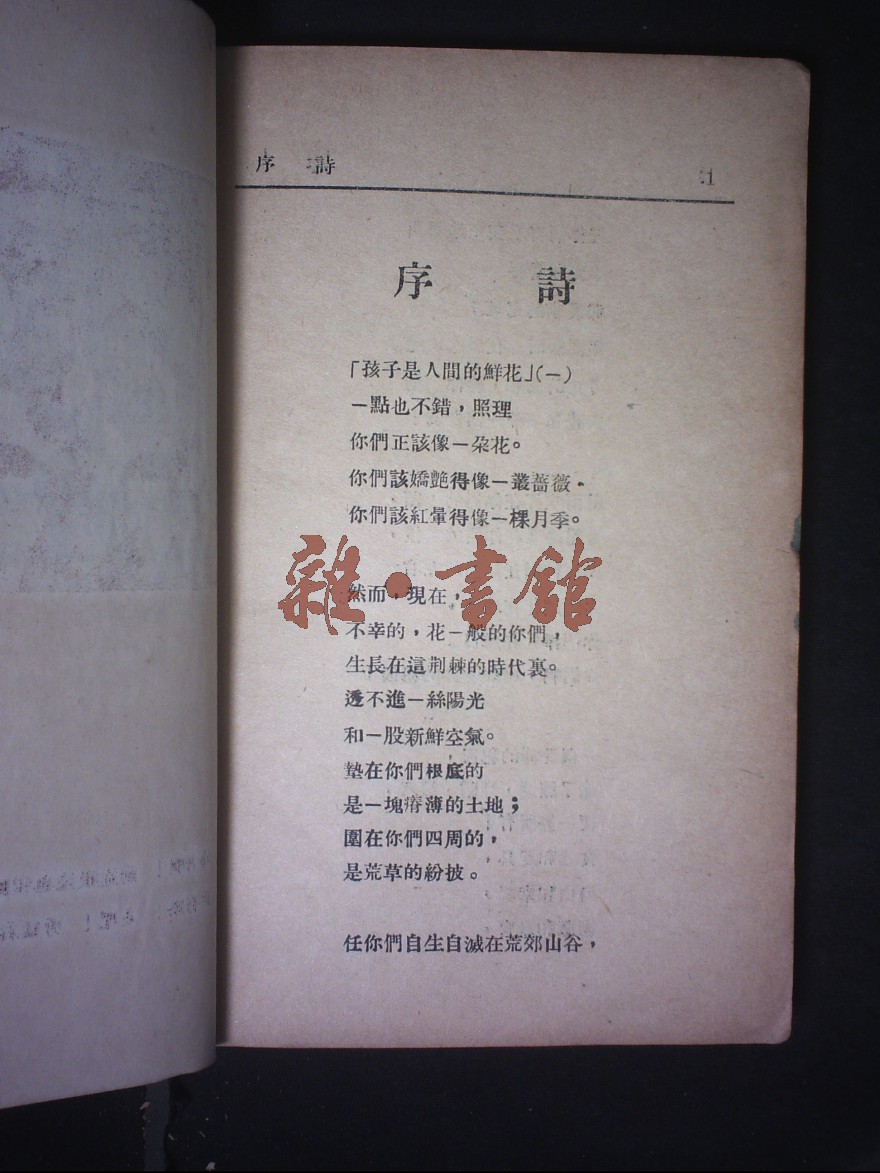 序 詩 1
序 詩
「孩子是人間的鮮花」(一)
一點也不錯，照理
你們正該像一朵花。
你們該嬌艷得像一叢薔薇。
你們該紅暈得像一棵月季。
雜·書館
然而，現在，
不幸的，花一般的你們，
生長在這荆棘的時代裏。
透不進一絲陽光
和一股新鮮空氣。
墊在你們根底的
是一塊瘠薄的土地；
圍在你們四周的，
是荒草的紛披。
任你們自生自滅在荒郊山谷，